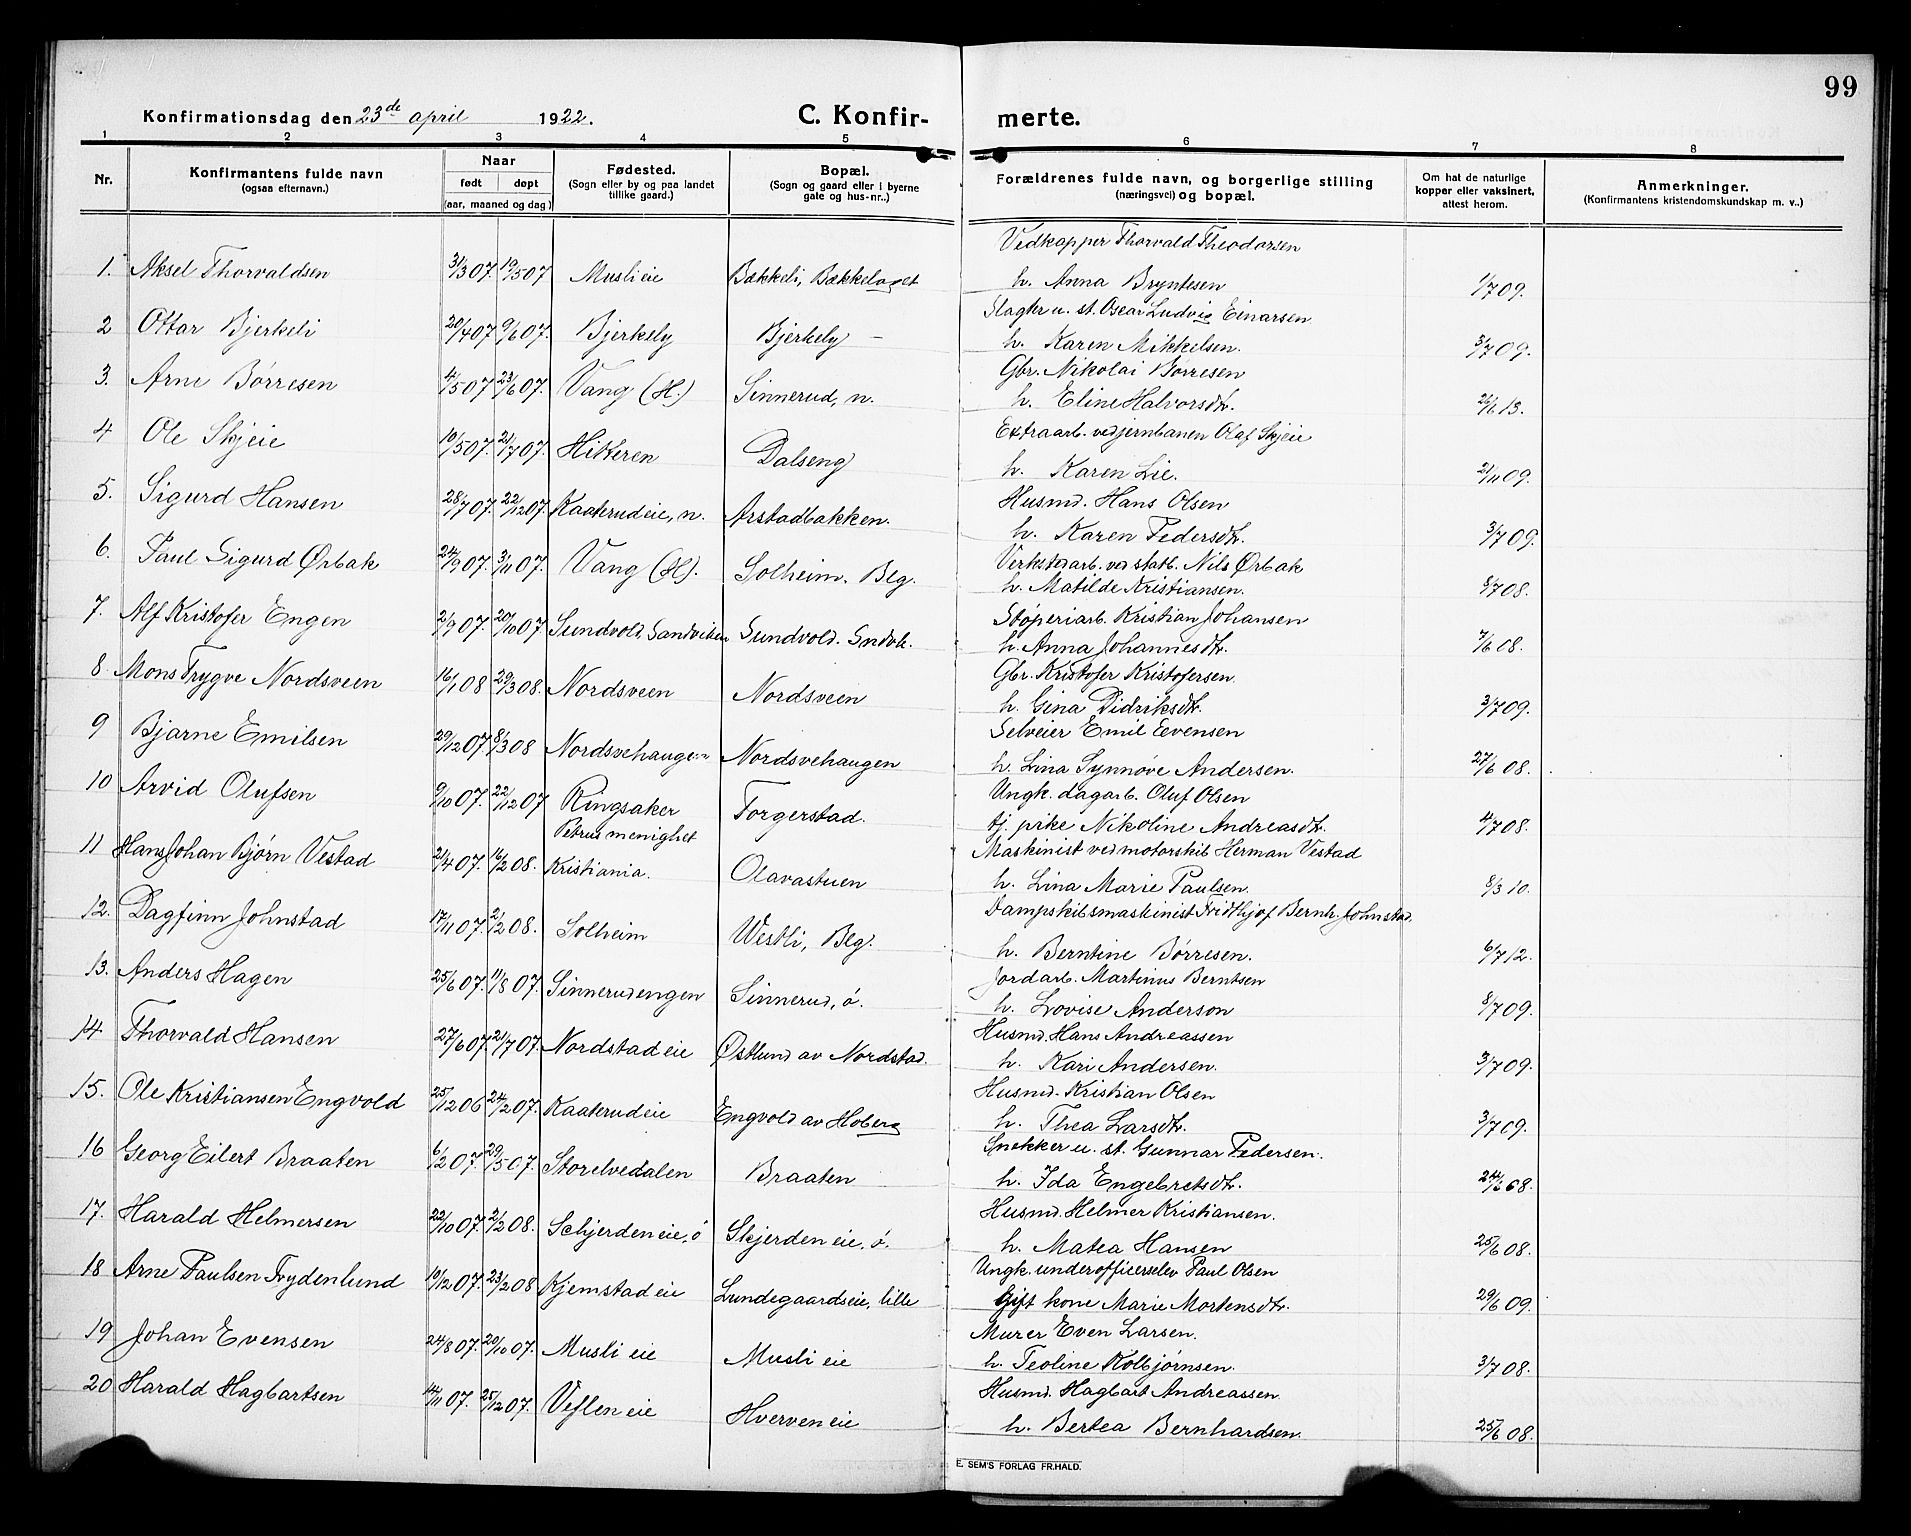 99
Konfirmationsdag den 23de april 1922. C. Konfir- merte.
1 2 3 4 5 6 7 8
Nr. Konfirmantens fulde navn (ogsaa efternavn.) Naar født døpt (aar, maaned og dag) Fødested. (Sogn eller by og paa landet tillike gaard.) Bopæl. (Sogn og gaard eller i byerne gate og hus-nr.) Forældrenes fulde navn, og borgerlige stilling (næringsvei) og bopæl. Om hat de naturlige kopper eller vaksinert, attest herom. Anmerkninger. (Konfirmantens kristendomskundskap m. v.)
Vedkapper Thorvald Theodorsen
1. Aksel Thorvaldsen 31/3 07 19/5 07 Musli eie Bækkeli, Bækkelaget h. Anna Bryntesen 1/7 09.
Slagter u. st. Oscar Ludvig Einarsen
2 Ottar Bjerkeli 20/4 07 9/6 07. Bjerkely Bjerkely – h. Karen Mikkelsen. 3/7 09.
Gbr. Nikolai Børresen
3. Arne Børresen 4/5 07 23/6 07. Vang (H.) Sinnerud, n. h. Eline Halvorsdtr. 26/6 13.
Extraarb. ved jernbanen Olaf Skjeie
4 Ole Skjeie 10/5 07. 21/7 07. Hitteren Dalseng h. Karen Lie. 21/11 09.
Husmd. Hans Olsen
5. Sigurd Hansen 28/7 07. 22/12 07. Kaaterud eie, n. Arstadbakken. h. Karen Pedersdtr. 3/7 09.
Verkstedarb. ved statb. Nils Ørbak
6. Paul Sigurd Ørbak 24/9 07. 3/11 07. Vang (H). Solheim. Blg. h. Matilde Kristiansen. 8/7 08.
Støperiarb. Kristian Johansen
7. Alf Kristofer Engen 2/9 07. 20/10 07. Sundvold. Sandviken Sundvold. Sndvk. h. Anna Johannesdtr. 7/6 08.
Gbr. Kristofer Kristofersen.
8 Mons Trygve Nordsveen 16/1 08 29/3 08. Nordsveen Nordsveen h. Gina Didriksdtr. 3/7 09.
Selveier Emil Evensen
9 Bjarne Emilsen 29/12 07 8/3 08 Nordsvehaugen Nordsvehaugen h. Lina Synnøve Andersen. 27/6 08.
Ungk. dagarb. Oluf Olsen
10 Arvid Olufsen 9/10 07. 22/12 07 Ringsaker Torgerstad. tj. pike Nikoline Andreasdtr. 4/7 08.
Petrus menighet Maskinist ved motorskib Herman Vestad
11 Hans Johan Bjørn Vestad 21/4 07. 16/2 08. Kristiania. Olavastuen h. Lina Marie Paulsen. 8/3 10.
Dampskibsmaskinist Fridthjof Bernh. Johnstad.
12. Dagfinn Johnstad 17/11 07. 2/2 08. Solheim Westli, Blg. h. Berntine Børresen. 6/7 12.
Jordarb. Martinus Berntsen
13. Anders Hagen 25/6 07. 11/8 07. Sinnerudengen Sinnerud, ø. h. Lovise Anderson 8/7 09.
Husmd. Hans Andreassen
14 Thorvald Hansen 27/6 07. 21/7 07. Nordstad eie Østlund av Nordstad. h. Kari Andersen. 3/7 09.
Husmd. Kristian Olsen
15. Ole Kristiansen Engvold 25/12 06 24/2 07. Kaaterud eie Engvold av Hoberg h. Thea Larsdtr. 3/7 09.
Snekker u. st. Gunnar Pedersen.
16 Georg Eilert Braaten 6/2 07. 29/5 07. Storelvedalen Braaten h. Ida Engebretsdtr. 24/6 08.
Husmd. Helmer Kristiansen.
17. Harald Helmersen 22/10 07. 2/2 08. Schjerden eie, ø Skjerden eie, ø. h. Matea Hansen 25/6 08.
Ungk. underofficerselev Paul Olsen
18 Arne Paulsen Frydenlund 10/12 07. 23/2 08 Kjemstad eie Lundegaardseie, lille Gift kone Marie Mortensdtr. 29/6 09.
Murer Even Larsen.
19 Johan Evensen 24/8 07. 20/10 07. Musli eie Musli eie h. Teoline Kolbjørnsen. 3/7 08.
Husmd. Hagbart Andreassen
20 Harald Hagbartsen 14/11 07. 25/12 07. Veflen eie Hverven eie h. Bertea Bernhardsen. 25/6 08.
E. SEM'S FORLAG FR.HALD.